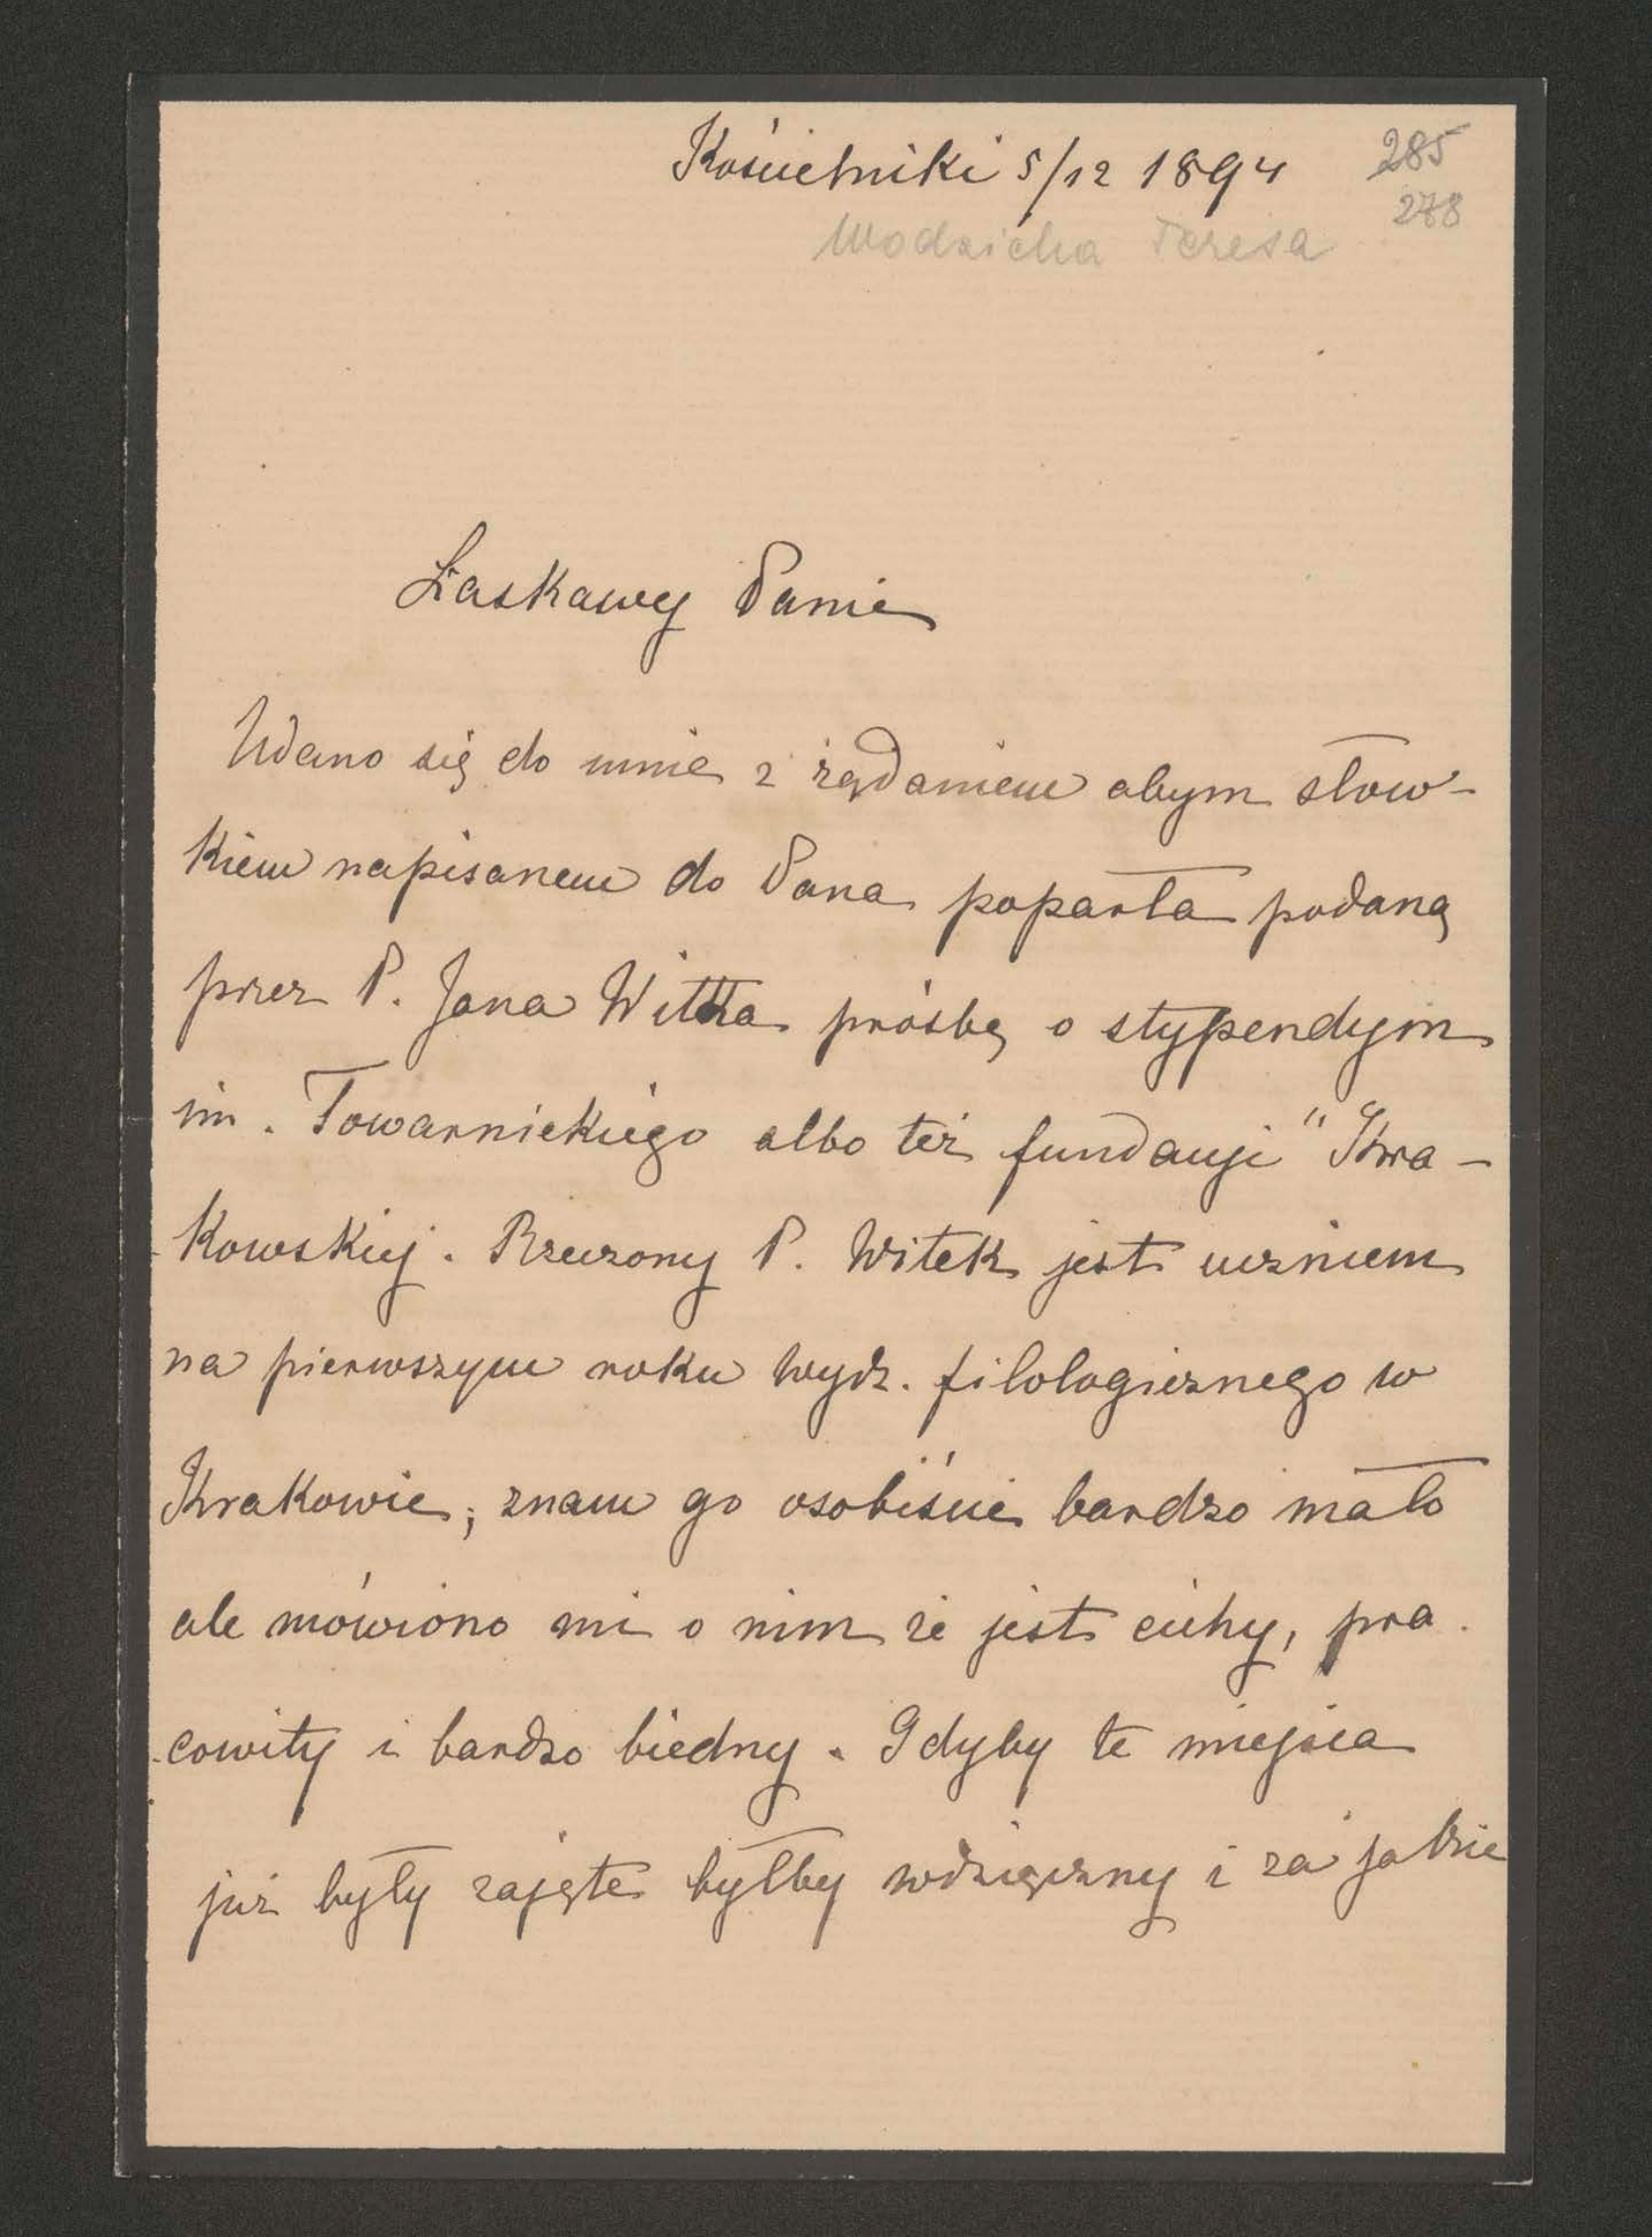 Kościelniki 5/12 1894
285
278
Wodzicka Teresa
Łaskawy Panie
Udano się do mnie z żądaniem abym słow-
kiem napisanem do Pana poparła podaną
przez P. Jana Witka prośbę o stypendym
im. Towarnickiego albo też fundacji "Kra-
kowskiej. Rzeczony P. Witek jest uczniem
na pierwszym roku wydz. filologicznego w
Krakowie; znam go osobiście bardzo mało
ale mówiono mi o nim że jest cichy, pra.
cowity i bardzo biedny. Gdyby te miejsca
już były zajęte byłby wdzięczny i za